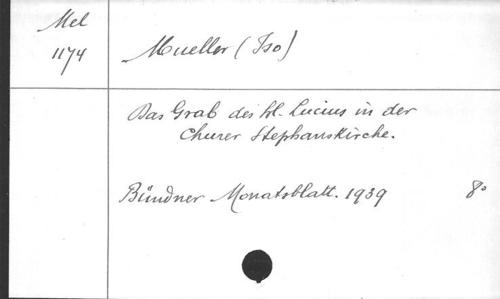 Mel
1174
Mueller (Iso)
Das Grab des hl. Lucius in der
Churer Stephanskirche.
Bündner Monatsblatt. 1939 8°